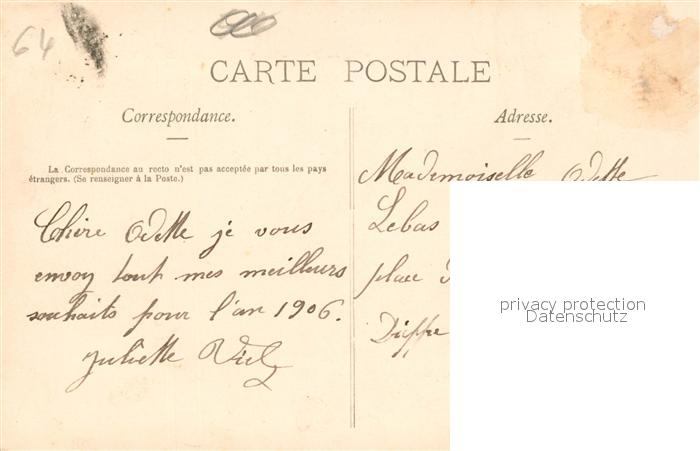 64
CARTE POSTALE
Correspondance.
La Correspondance au recto n'est pas acceptée par tous les pays
étrangers. (Se renseigner à la Poste.)
Chère Odette je vous
envoy tout mes meilleurs
souhaits pour l'an 1906.
Juliette Viel
Adresse.
Mademoiselle Odette
Lebas
place
Dieppe
privacy protection
Datenschutz